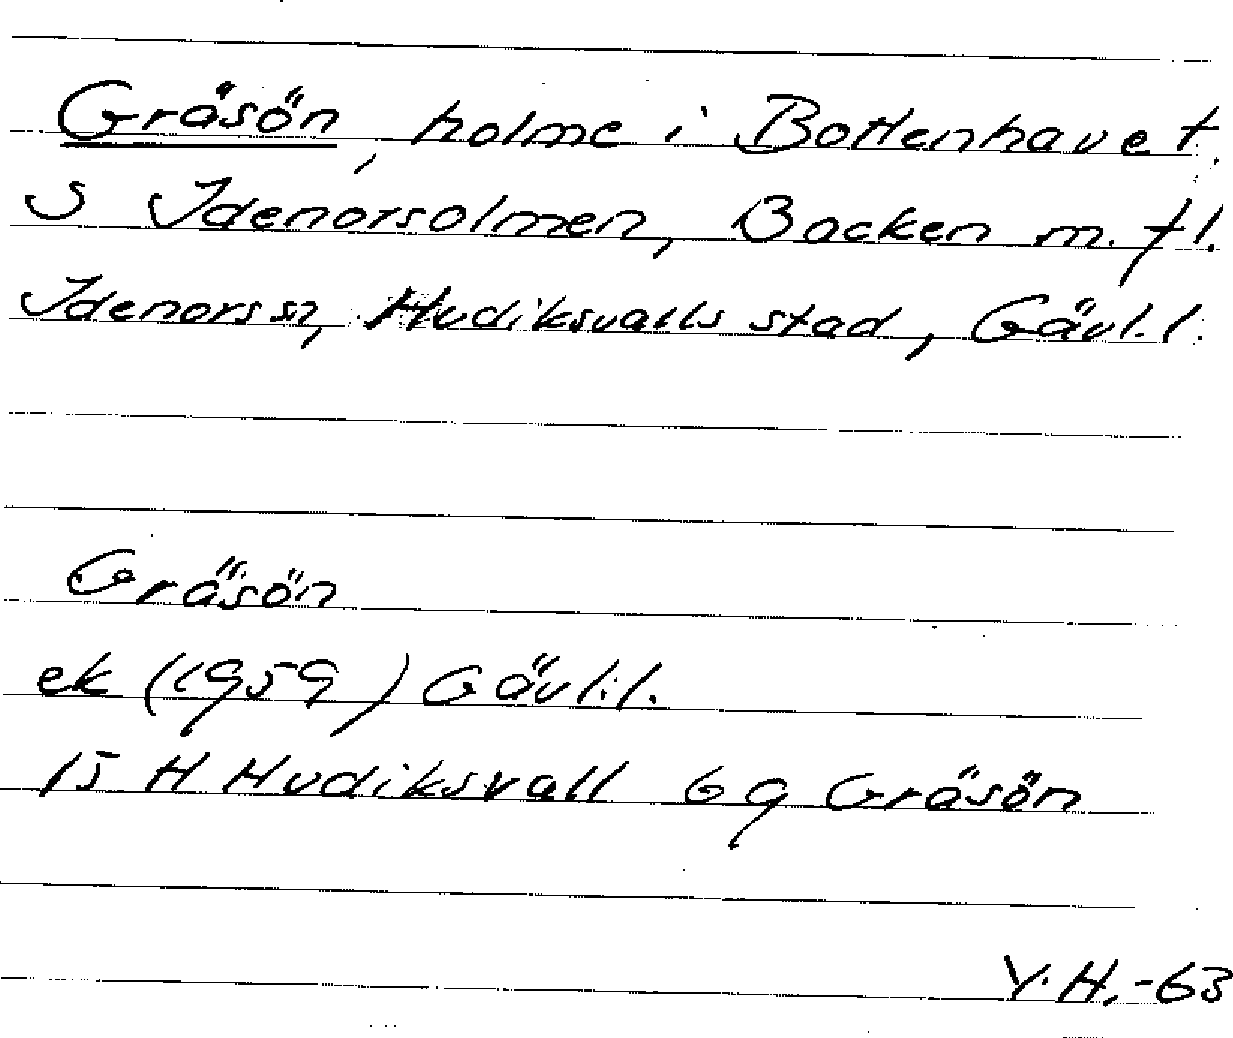 Gräsön, holme i Bottenhavet,
S Idenorsolmen, Backen m. fl.
Idenors sn, Hudiksvalls stad, Gävl. l.
Gräsön
ek (1959) Gävl. l.
15 H Hudiksvall 6 g Gräsön
Y. H. -63